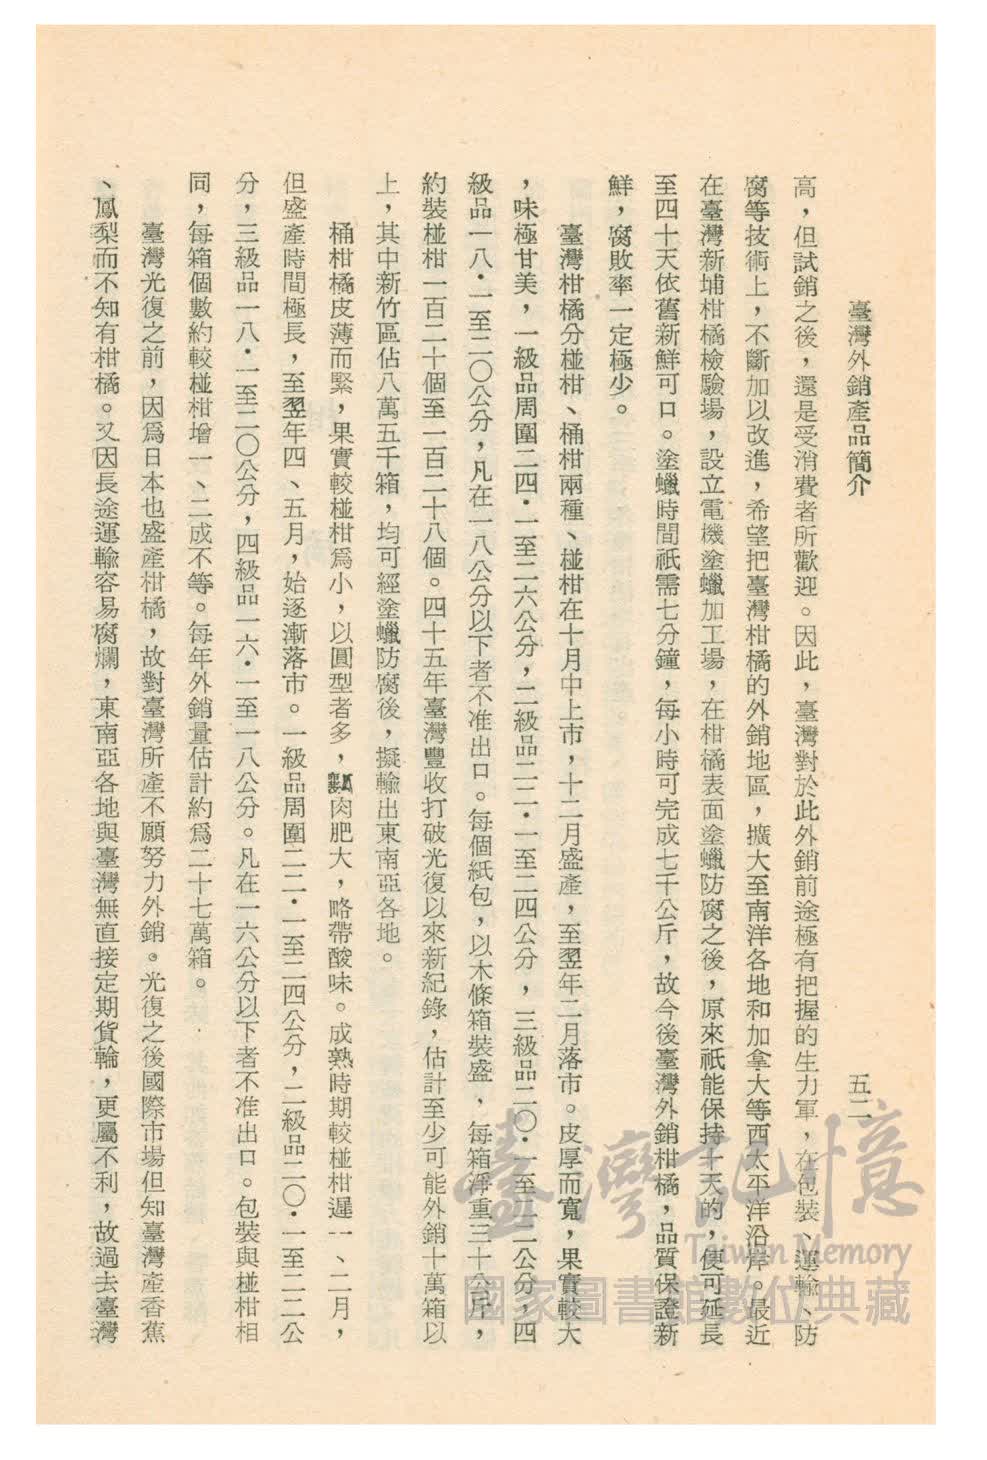 臺灣外銷產品簡介 五二
高，但試銷之後，還是受消費者所歡迎。因此，臺灣對於此外銷前途極有把握的生力軍，在包裝、運輸、防
腐等技術上，不斷加以改進，希望把臺灣柑橘的外銷地區，擴大至南洋各地和加拿大等西太平洋沿岸。最近
在臺灣新埔柑橘檢驗場，設立電機塗蠟加工場，在柑橘表面塗蠟防腐之後，原來祇能保持十天的，便可延長
至四十天依舊新鮮可口。塗蠟時間祇需七分鐘，每小時可完成七千公斤，故今後臺灣外銷柑橘，品質保證新
鮮，腐敗率一定極少。
臺灣柑橘分椪柑、桶柑兩種、椪柑在十月中上市，十二月盛產，至翌年二月落市。皮厚而寬，果實較大
，味極甘美，一級品周圍二四·一至二六公分，二級品二二·一至二四公分，三級品二〇·一至二二公分，四
級品一八·一至二〇公分，凡在一八公分以下者不准出口。每個紙包，以木條箱裝盛、每箱淨重三十公斤，
約裝椪柑一百二十個至一百二十八個。四十五年臺灣豐收打破光復以來新紀錄，估計至少可能外銷十萬箱以
上，其中新竹區佔八萬五千箱，均可經塗蠟防腐後，擬輸出東南亞各地。
桶柑橘皮薄而緊，果實較椪柑爲小，以圓型者多，肉肥大，略帶酸味。成熟時期較椪柑遲一、二月，
但盛產時間極長，至翌年四、五月，始逐漸落市。一級品周圍二二·一至二四公分，二級品二〇·一至二二公
分，三級品一八·一至二〇公分，四級品一六·一至一八公分。凡在一六公分以下者不准出口。包裝與椪柑相
同，每箱個數約較椪柑增一、二成不等。每年外銷量估計約爲二十七萬箱。
臺灣光復之前，因爲日本也盛產柑橘，故對臺灣所產不願努力外銷。光復之後國際市場但知臺灣產香蕉
、鳳梨而不知有柑橘。又因長途運輸容易腐爛，東南亞各地與臺灣無直接定期貨輪，更屬不利，故過去臺灣
臺灣記憶
Taiwan Memory
國家圖書館數位典藏